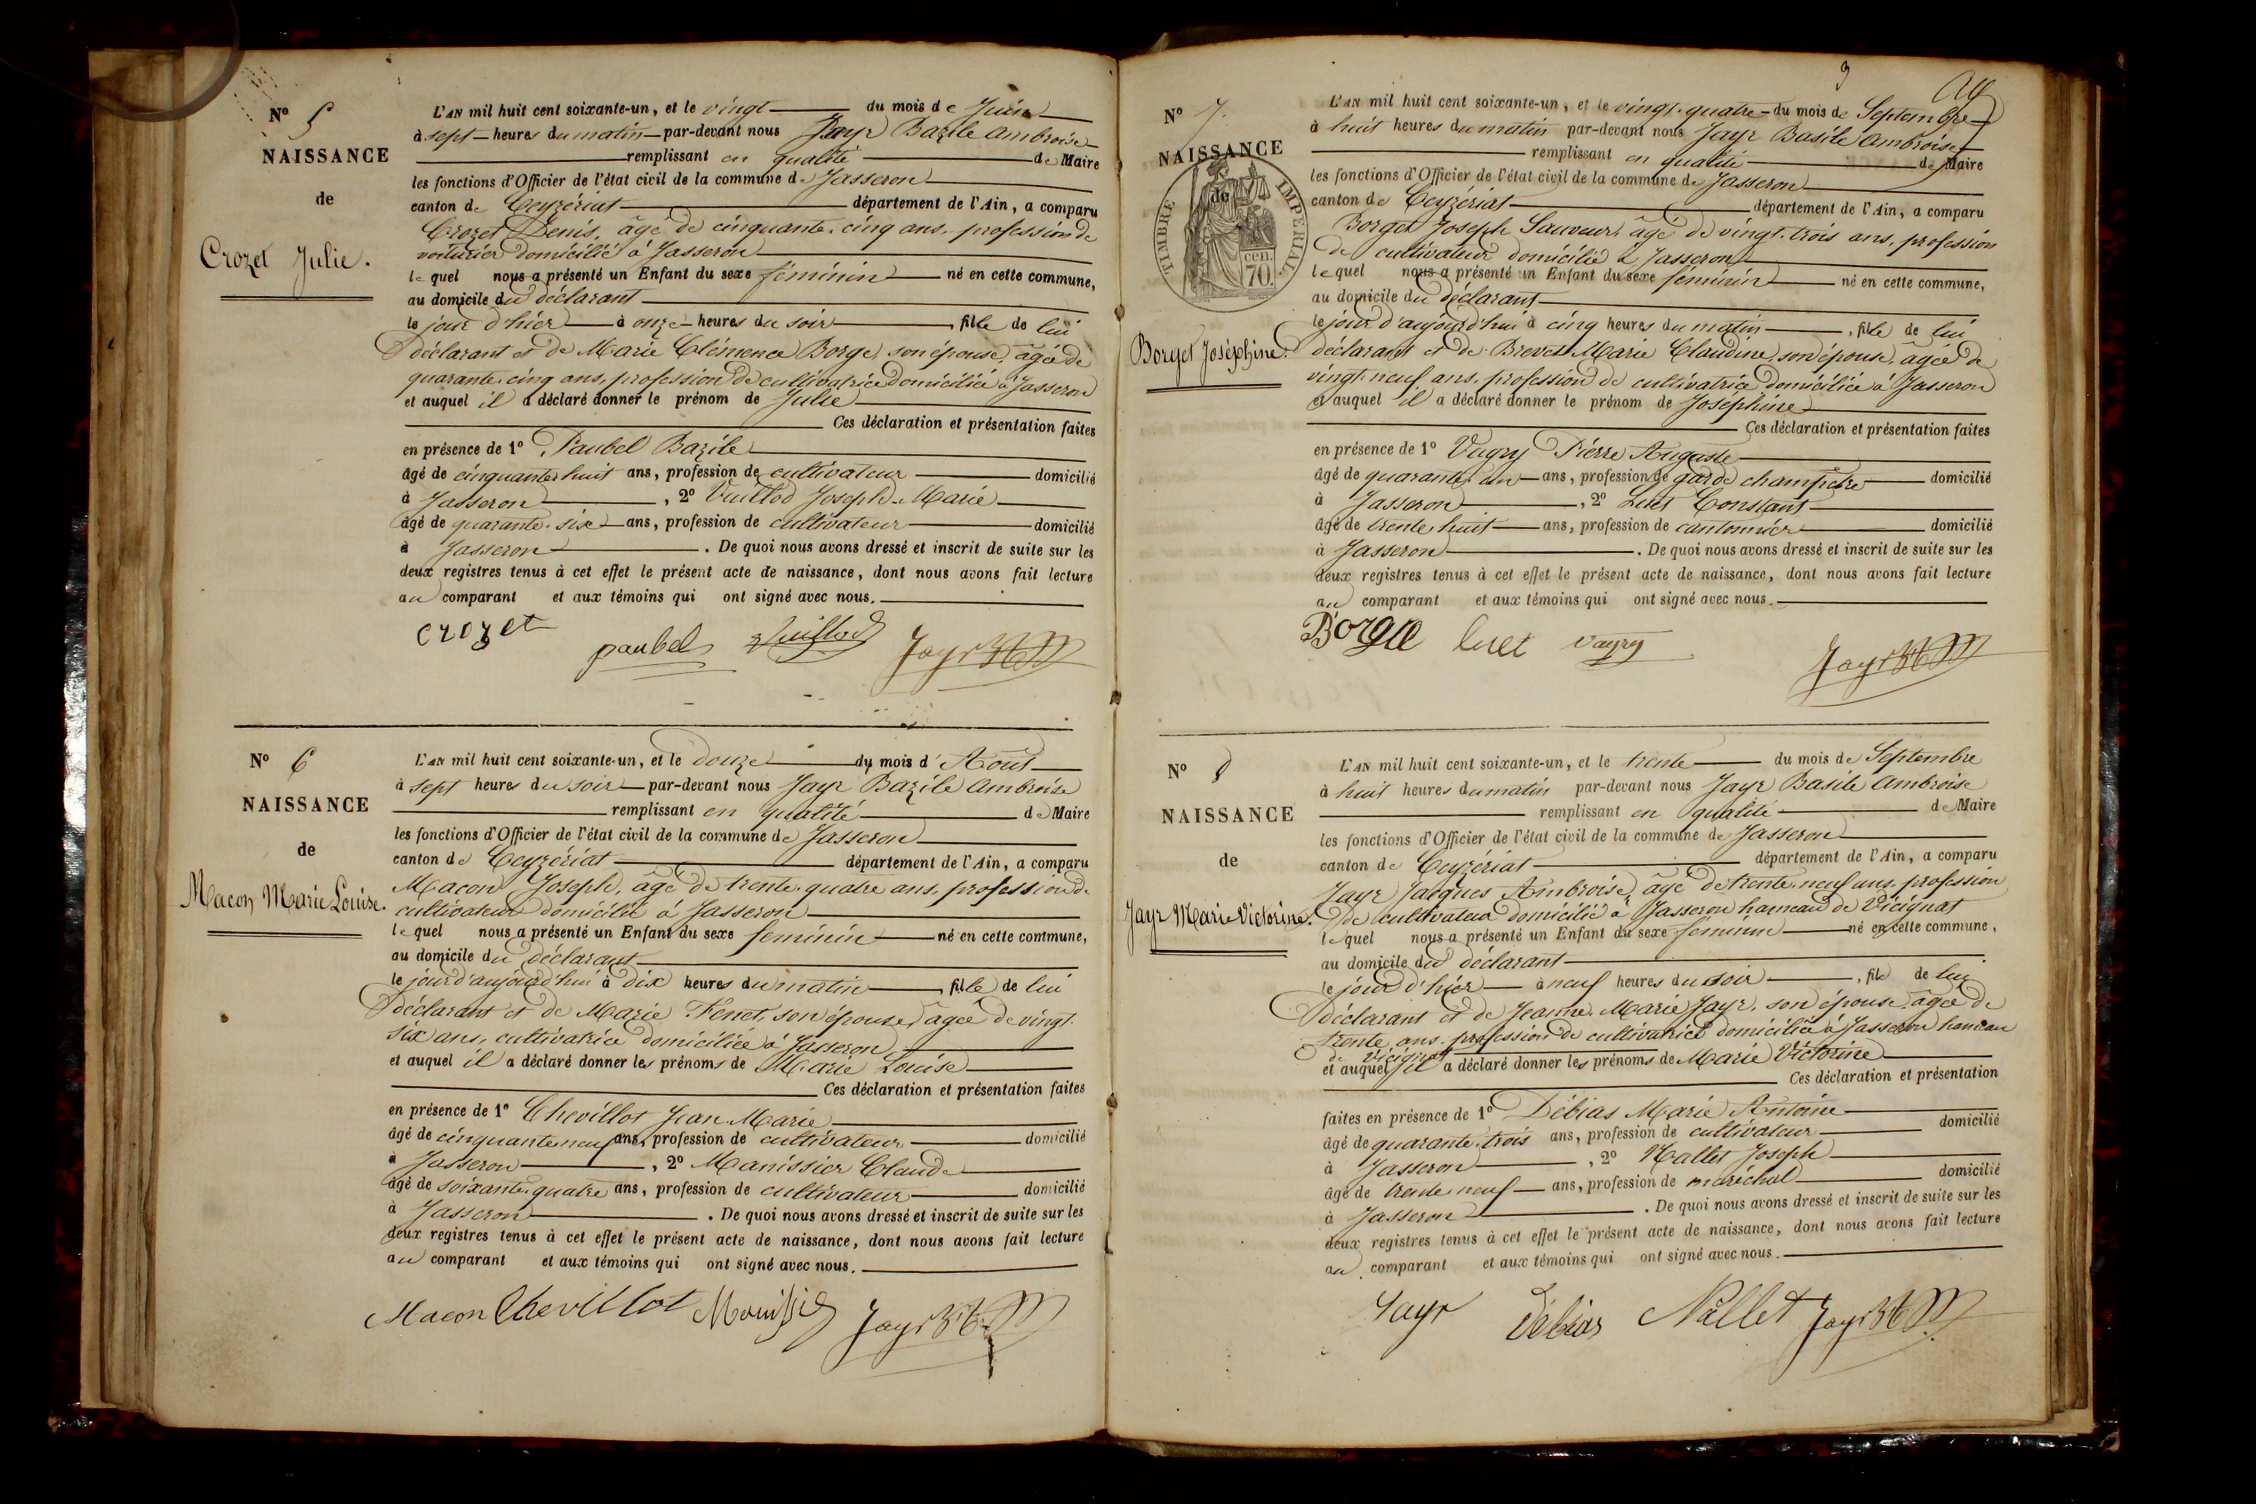 N° 5
NAISSANCE
de
Crozet Julie.
L'AN mil huit cent soixante-un, et le vingt du mois de Juin
à sept heures du matin par-devant nous Jayr Bazile Ambroise
remplissant en qualité de Maire
les fonctions d'Officier de l'état civil de la commune de Jasseron
canton de Ceyzériat département de l'Ain, a comparu
Crozet Denis, âgé de cinquante-cinq ans, profession de
voiturier domicilié à Jasseron
lequel nous a présenté un Enfant du sexe féminin né en cette commune,
au domicile du déclarant
le jour d'hier à onze heures du soir, fille de lui
déclarant et de Marie Clémence Borge, son épouse, âgée de
quarante-cinq ans, profession de cultivatrice domiciliée à Jasseron
et auquel il a déclaré donner le prénom de Julie
Ces déclaration et présentation faites
en présence de 1° Paubel Bazile
âgé de cinquante huit ans, profession de cultivateur domicilié
à Jasseron, 2° Vuillod Joseph-Marie
âgé de quarante-six ans, profession de cultivateur domicilié
à Jasseron. De quoi nous avons dressé et inscrit de suite sur les
deux registres tenus à cet effet le présent acte de naissance, dont nous avons fait lecture
au comparant et aux témoins qui ont signé avec nous.
crozet paubel Vuillod Jayr
N° 6
NAISSANCE
de
Macon Marie Louise.
L'AN mil huit cent soixante-un, et le douze du mois d'Août
à sept heures du soir par-devant nous Jayr Bazile Ambroise
remplissant en qualité de Maire
les fonctions d'Officier de l'état civil de la commune de Jasseron
canton de Ceyzériat département de l'Ain, a comparu
Macon Joseph, âgé de trente-quatre ans, profession de
cultivateur domicilié à Jasseron
lequel nous a présenté un Enfant du sexe féminin né en cette commune,
au domicile du déclarant
le jour d'aujourd'hui à dix heures du matin, fille de lui
déclarant et de Marie Fenet, son épouse, âgée de vingt-
six ans, cultivatrice domiciliée à Jasseron
et auquel il a déclaré donner les prénoms de Marie Louise
Ces déclaration et présentation faites
en présence de 1° Chevillot Jean-Marie
âgé de cinquante neuf ans, profession de cultivateur domicilié
à Jasseron, 2° Manissier Claude
âgé de soixante-quatre ans, profession de cultivateur domicilié
à Jasseron. De quoi nous avons dressé et inscrit de suite sur les
deux registres tenus à cet effet le présent acte de naissance, dont nous avons fait lecture
au comparant et aux témoins qui ont signé avec nous.
Macon Chevillot Jayr
3
N° 7.
NAISSANCE
de
TIMBRE IMPÉRIAL
70 cen.
Borget Joséphine.
L'AN mil huit cent soixante-un, et le vingt-quatre du mois de Septembre
à huit heures du matin par-devant nous Jayr Basile Ambroise
remplissant en qualité de Maire
les fonctions d'Officier de l'état civil de la commune de Jasseron
canton de Ceyzériat département de l'Ain, a comparu
Borget Joseph Sauveur, âgé de vingt-trois ans, profession
de cultivateur domicilié à Jasseron
lequel nous a présenté un Enfant du sexe féminin né en cette commune,
au domicile du déclarant
le jour d'aujourd'hui à cinq heures du matin, fille de lui
déclarant et de Brevet Marie Claudine, son épouse, âgée de
vingt-neuf ans, profession de cultivatrice domiciliée à Jasseron
et auquel il a déclaré donner le prénom de Joséphine
Ces déclaration et présentation faites
en présence de 1° Vagry Pierre Auguste
âgé de quarante-un ans, profession de garde champêtre domicilié
à Jasseron, 2° Luet Constant
âgé de trente-huit ans, profession de cantonnier domicilié
à Jasseron. De quoi nous avons dressé et inscrit de suite sur les
deux registres tenus à cet effet le présent acte de naissance, dont nous avons fait lecture
au comparant et aux témoins qui ont signé avec nous.
luet vagry Jayr
N° 8
NAISSANCE
de
Jayr Marie Victorine.
L'AN mil huit cent soixante-un, et le trente du mois de Septembre
à huit heures du matin par-devant nous Jayr Basile Ambroise
remplissant en qualité de Maire
les fonctions d'Officier de l'état civil de la commune de Jasseron
canton de Ceyzériat département de l'Ain, a comparu
Jayr Jacques Ambroise, âgé de trente-neuf ans, profession
de cultivateur domicilié à Jasseron hameau de Vicignat
lequel nous a présenté un Enfant du sexe féminin né en cette commune,
au domicile du déclarant
le jour d'hier à neuf heures du soir, fille de lui
déclarant et de Jeanne-Marie Jayr, son épouse, âgée de
trente ans, profession de cultivatrice domiciliée à Jasseron hameau
de Vicignat
et auquel il a déclaré donner les prénoms de Marie Victorine
Ces déclaration et présentation
faites en présence de 1° Débias Marie Antoine
âgé de quarante-trois ans, profession de cultivateur domicilié
à Jasseron, 2° Nallet Joseph
âgé de trente-neuf ans, profession de maréchal domicilié
à Jasseron. De quoi nous avons dressé et inscrit de suite sur les
deux registres tenus à cet effet le présent acte de naissance, dont nous avons fait lecture
au comparant et aux témoins qui ont signé avec nous.
Jayr Débias Nallet Jayr